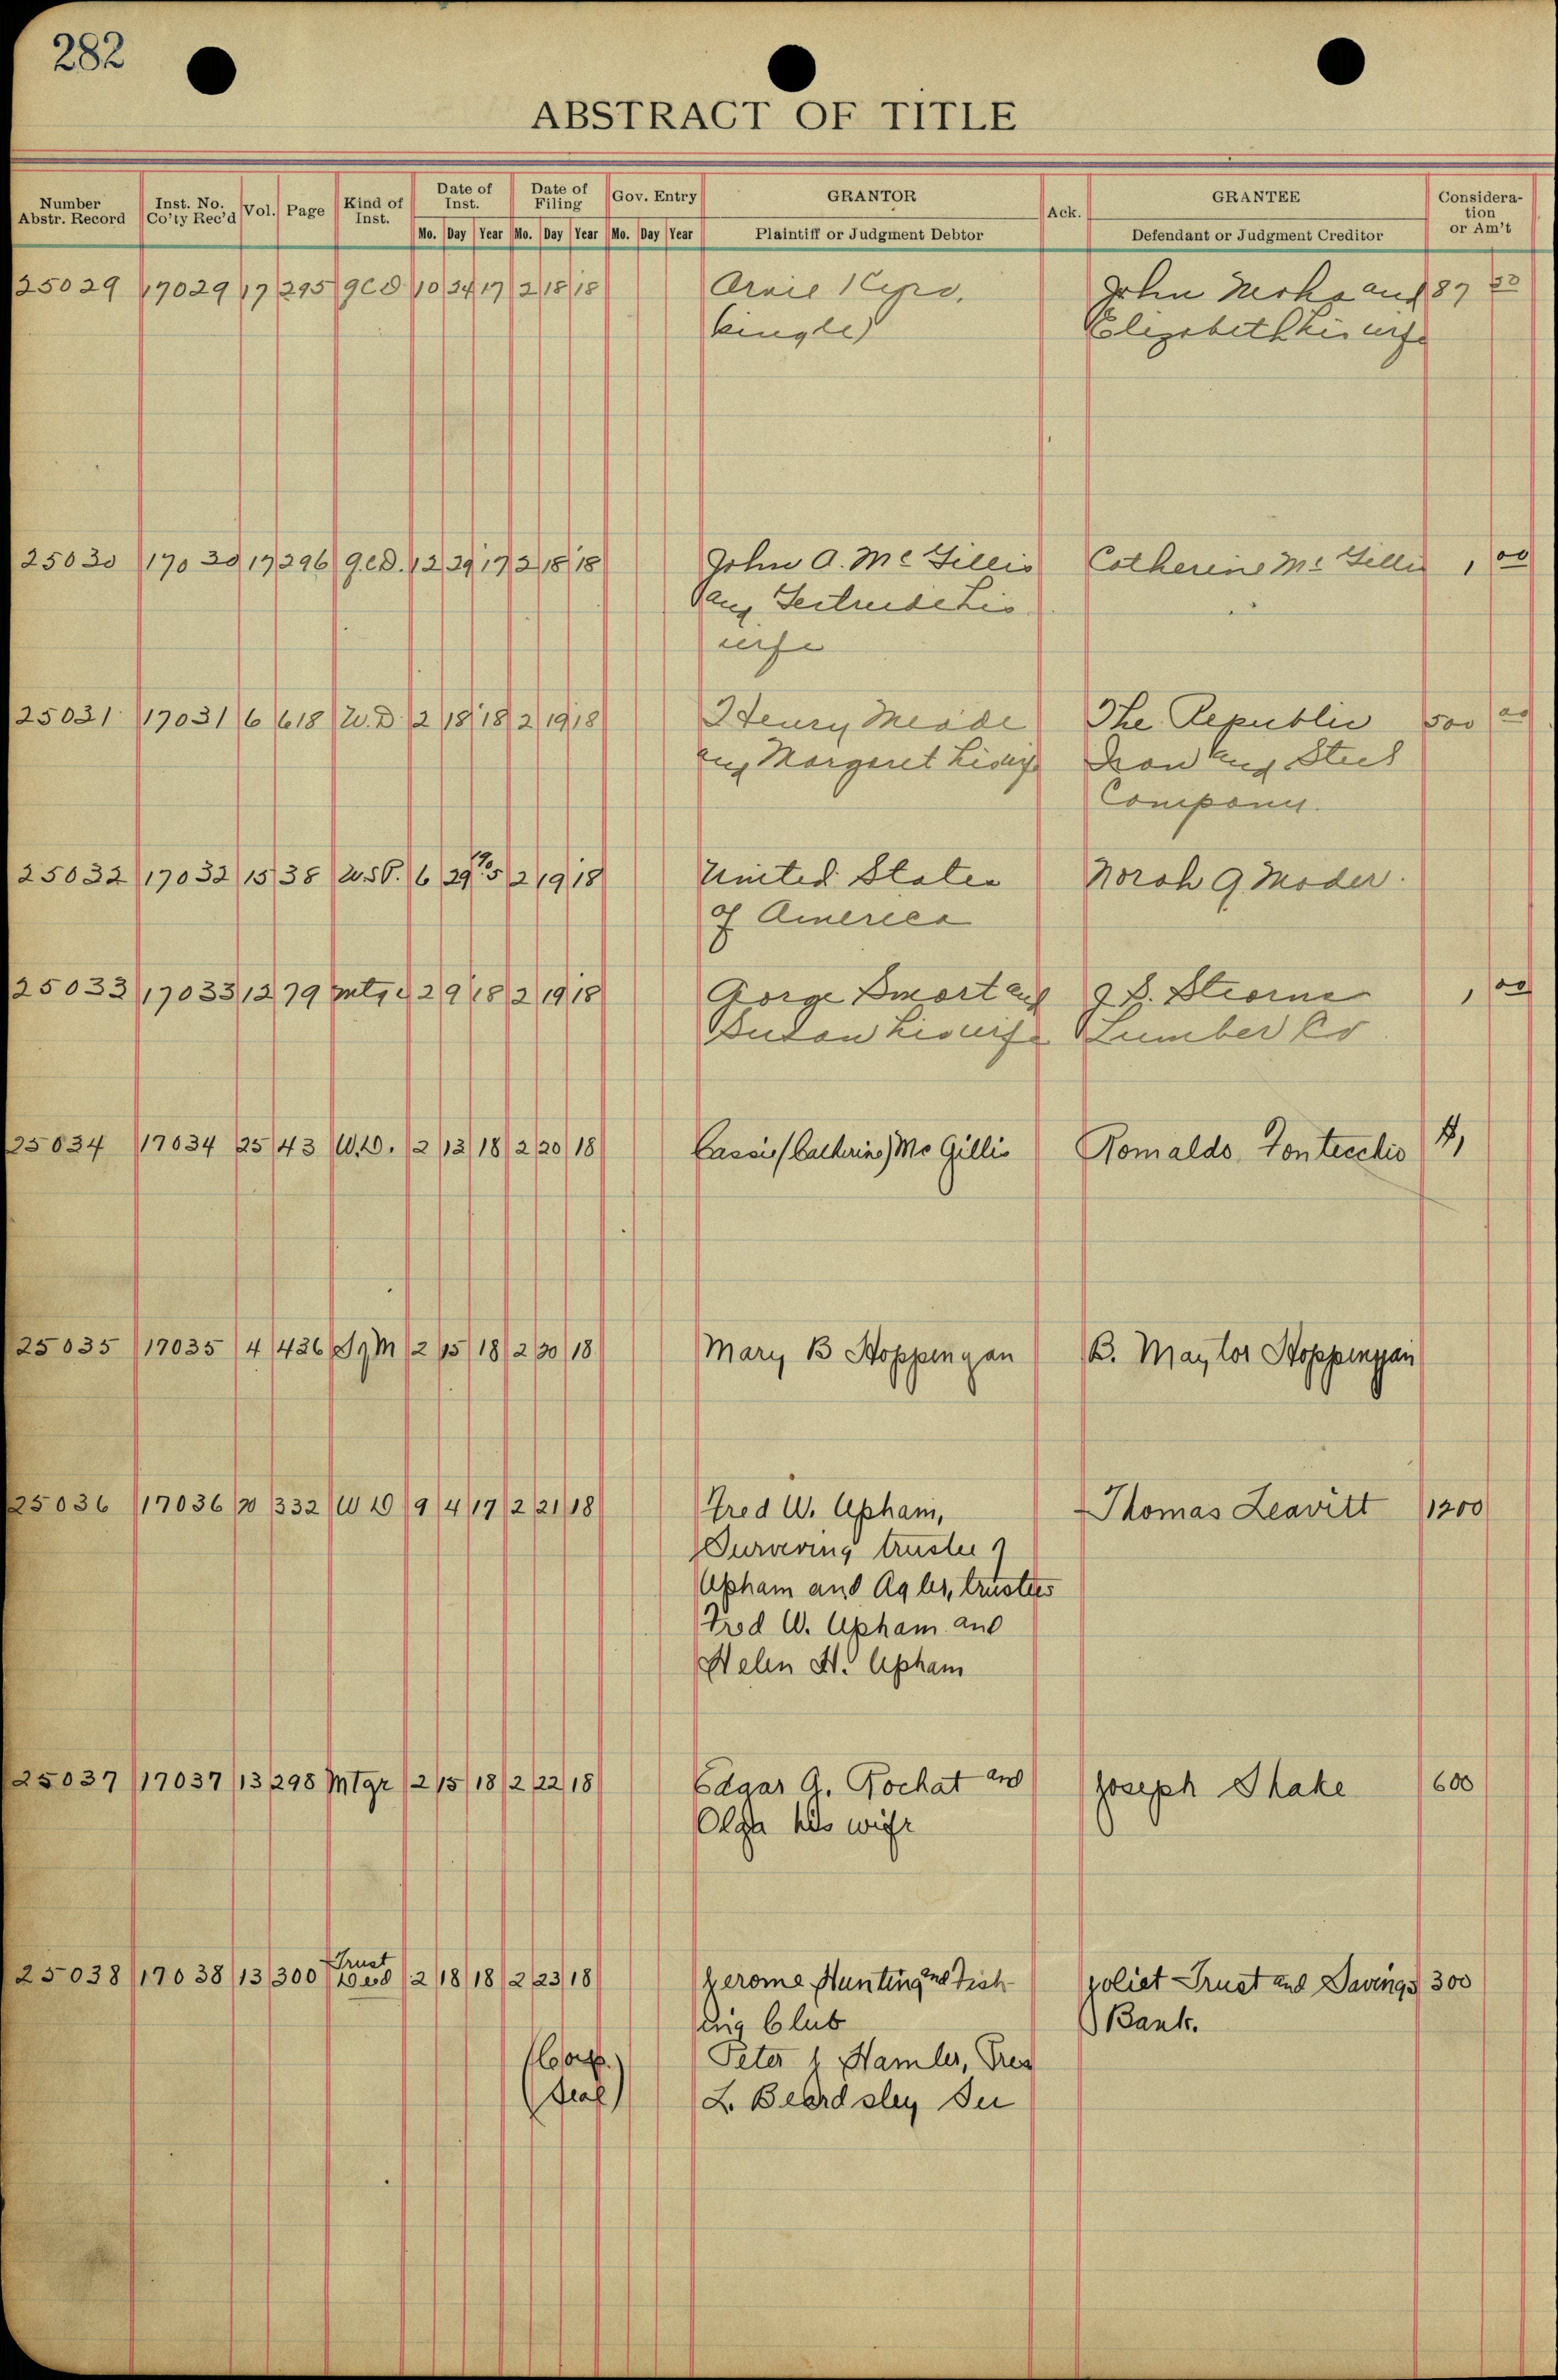 282
ABSTRACT OF TITLE
Number Abstr. Record Inst. No. Co'ty Rec'd Vol. Page Kind of Inst. Date of Inst. Date of Filing Gov. Entry GRANTOR Ack. GRANTEE Consideration or Am't
Mo. Day Year Mo. Day Year Mo. Day Year Plaintiff or Judgment Debtor Defendant or Judgment Creditor
25029 17029 17 295 QCD 10 24 17 2 18 18 John and 87 50
(single) Elizabeth his wife
25030 17030 17 296 Q.C.D. 12 29 17 2 18 18 John A. Mc Gillis Catherine Mc Gillis 1 00
and Gertrude his
wife
25031 17031 6 618 W.D. 2 18 18 2 19 18 Henry Meade The Republic 500 00
and Margaret his wife Iron and Steel
Company.
25032 17032 15 38 U.S.P. 6 29 '05 2 19 18 United States Norah J Moder.
of America
25033 17033 12 79 Mtge 2 9 18 2 19 18 Gorge Smart and Stearns 1 00
Susan his wife Lumber Co
25034 17034 25 43 W.D. 2 13 18 2 20 18 Cassie (Catherine) Mc Gillis Romaldo Fontecchio $1
25035 17035 4 436 2 15 18 2 20 18 Mary B Hoppengan B. Maylor Hoppengan
25036 17036 20 332 W D 9 4 17 2 21 18 Fred W. Upham, Thomas Leavitt 1200
Surviving trustee of
Upham and Agler, trustees
Fred W. Upham and
Helen H. Upham
25037 17037 13 298 Mtge 2 15 18 2 22 18 Edgar A. Rochat and Joseph Shake 600
Olga his wife
25038 17038 13 300 Trust Deed 2 18 18 2 23 18 Jerome Hunting and Fish- Joliet Trust and Savings 300
ing Club Bank.
(Corp. Peter J Hamler, Pres
Seal) L. Beardsley Sec